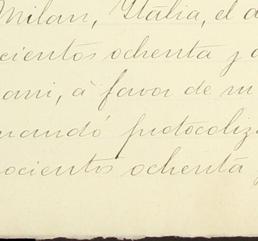 Milan, Italia, el d
cientos ochenta y o
ami, á favor de m
mandó protocoliz
ocientos ochenta y